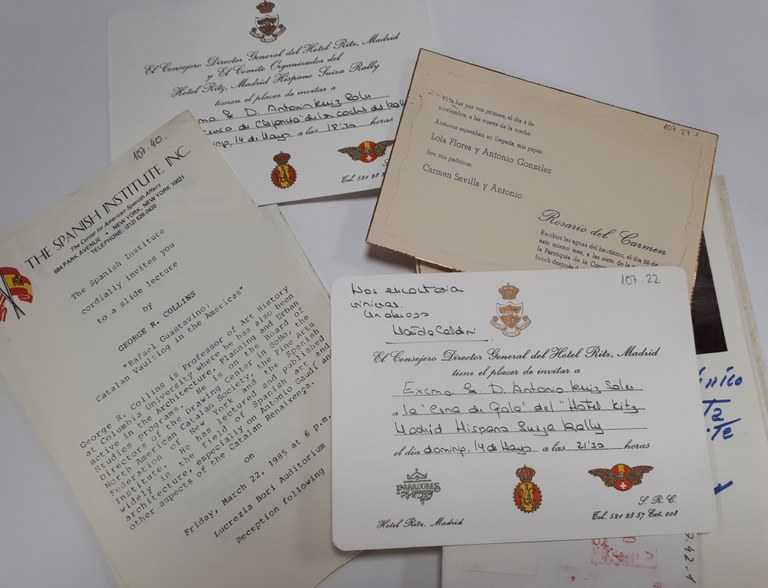 El Consejero Director General del Hotel Ritz, Madrid
y El Comite Organizador del
Hotel Ritz, Madrid Hispano Suiza Rally
tienen el placer de invitar a
D. Antonio Ruiz Soler
14 de Mayo a las 18'30 horas
107.40.
THE SPANISH INSTITUTE, INC.
The Center for American-Spanish Affairs
684 PARK AVENUE • NEW YORK, NEW YORK 10021
TELEPHONE: (212) 628-0420
The Spanish Institute
cordially invites you
to a slide lecture
by
GEORGE R. COLLINS
"Rafael Guastavino:
Catalan Vaulting in the Americas"
George R. Collins is Professor of Art History
at Columbia University where he has also been
active in the Architecture, Planning and Urban
Studies programs. He is on the Board of
Directors of the Drawing Center in SoHo, the
North American Catalan Society, the Fine Arts
Federation of New York and the Spanish
Institute. He has lectured and published
widely in the field of Spanish art and
architecture, especially on Antonio Gaudí and
other aspects of the Catalan Renaixença.
on
Friday, March 22, 1985 at 6 p.m.
Lucrezia Bori Auditorium
Reception following
107.27.1
Vi la luz por vez primera, el día 4 de
noviembre, a las nueve de la noche
Ansiosos esperaban mi llegada, mis papás
Lola Flores y Antonio González
Son mis padrinos
Carmen Sevilla y Antonio
Rosario del Carmen
Recibiré las aguas del bautismo, el día
este mismo mes, a las siete de la
la Parroquia de la
lunch después
107.22
Nos encantaría
vinieras.
Un abrazo
El Consejero Director General del Hotel Ritz, Madrid
tiene el placer de invitar a
Excmo Sr. D. Antonio Ruiz Soler
a la "Cena de Gala" del "Hotel Ritz
Madrid Hispano Suiza Rally
el día doming. 14 de Mayo a las 21'30 horas
PARADORES
S. R. C.
Hotel Ritz, Madrid
Tel. 521 28 57 Ext. 208